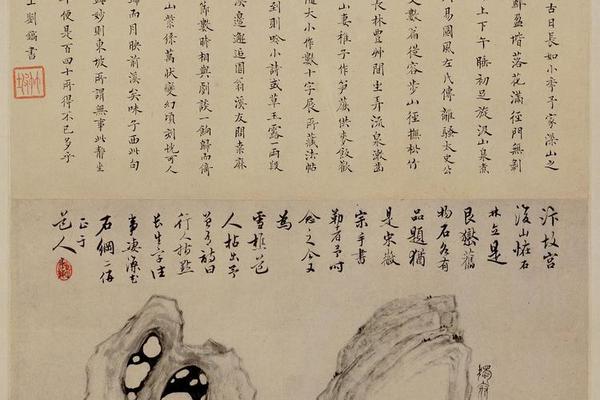 古日長如小年予家深山之
蘚盈堦落花滿徑門無剝
上下午睡初足旋汲山泉煮
周易國風左氏傳離騷太史公
文數篇從容步山徑撫松竹
長林豐艸間坐弄流泉漱齒
山妻稚子作筍蕨供麥飯歡
隨大小作數十字展所藏法帖
到則吟小詩或草玉露一兩段
溪邊邂逅園翁溪友問桑麻
節數時相與劇談一餉歸而倚
山紫綠萬狀變幻頃刻恍可人
歸而月映前溪矣味子西此句
妙則東坡所謂無事此靜坐
便是百四十所得不已多乎
士劉鏞書
汴故宮
後山恠石
林立是
艮嶽舊
物石各有
品題猶
是宋徽
宗手書
勒者予
之今又
為
雪
人拈出予
曾有詩曰
行人指點
長生字往
事凄涼
石綱一併
正于
人